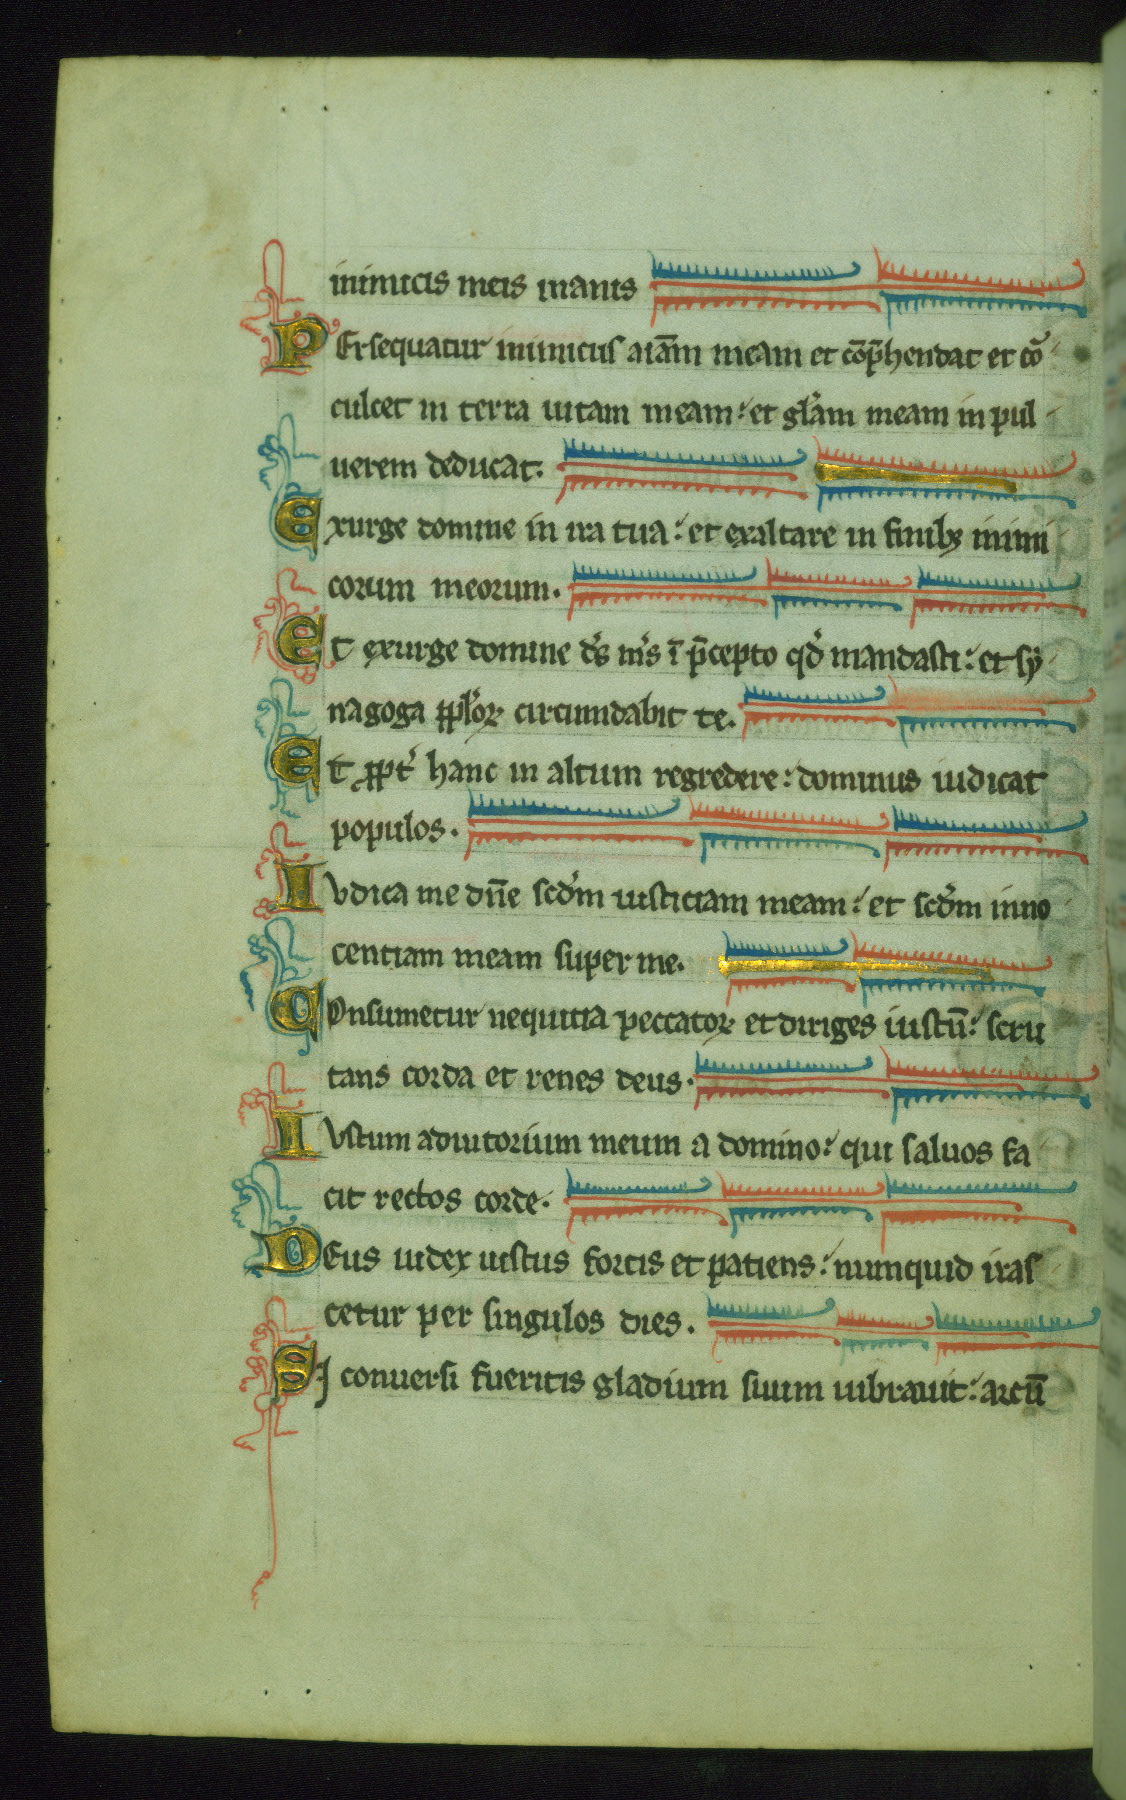 inimicis meis inanis
PErsequatur inimicus aīam meam et cōp̄hendat et cō
culcet in terra uitam meam: et gl̄am meam in pul
uerem deducat.
Exurge domine in ira tua: et exaltare in finibꝫ inimi
corum meorum.
Et exurge domine ds̄ ms̄ ī p̄cepto qd̄ mandasti: et sy
nagoga ppl̄oꝝ circumdabit te.
Et ppt̄ hanc in altum regredere: dominus iudicat
populos.
IVdica me dn̄e scd̄m iusticiam meam: et scd̄m inno
centiam meam super me.
COnsumetur nequitia peccatoꝝ et diriges iustū: scru
tans corda et renes deus.
IVstum adiutorium meum a domino: qui saluos fa
cit rectos corde.
DEus iudex iustus fortis et patiens: numquid iras
cetur per singulos dies.
SI conuersi fueritis gladium suum uibrauit: arcū